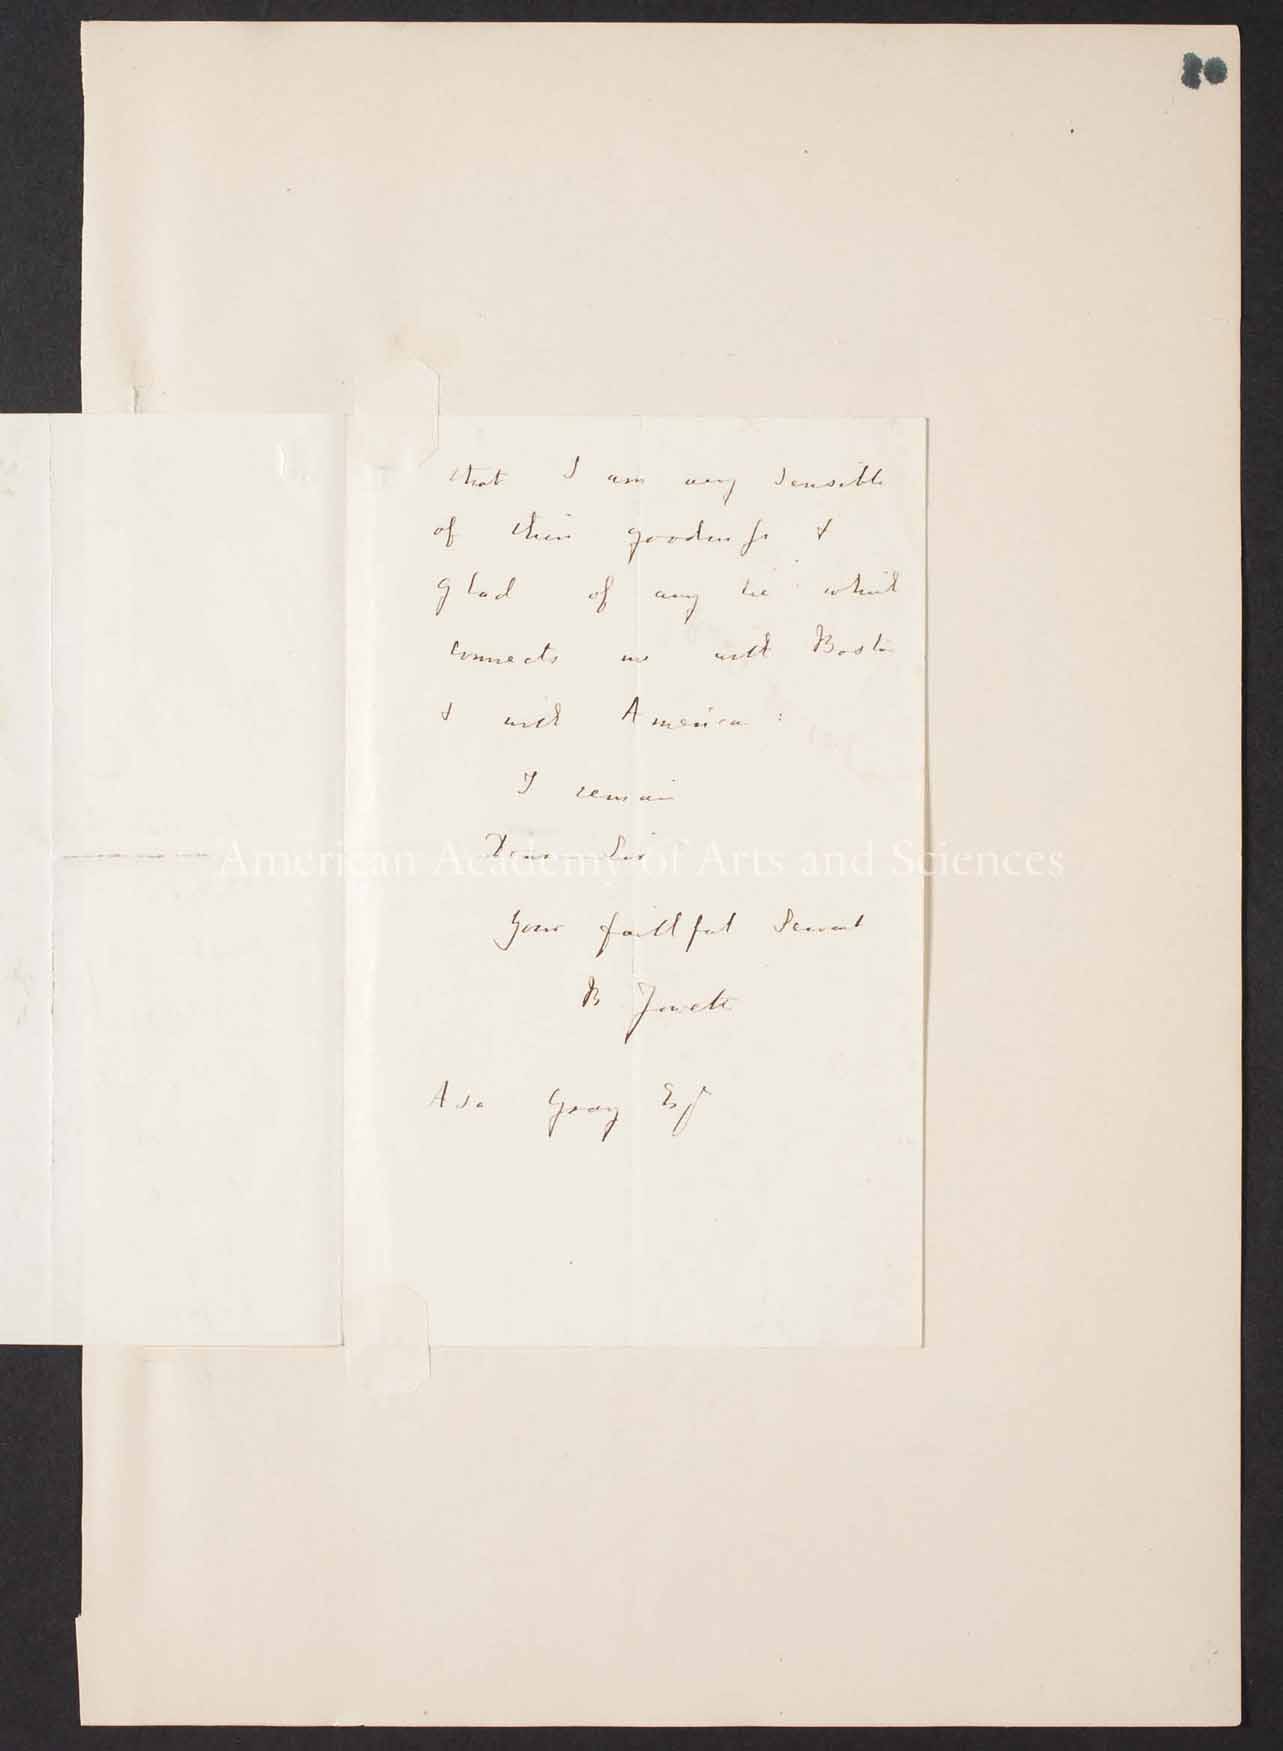 that I am very sensible
of their goodness &
glad of any tie which
connects me with Boston
& with America:
I remain
Dear Sir
American Academy of Arts and Sciences
Your faithful Servant
B Jowett
Asa Gray Esq